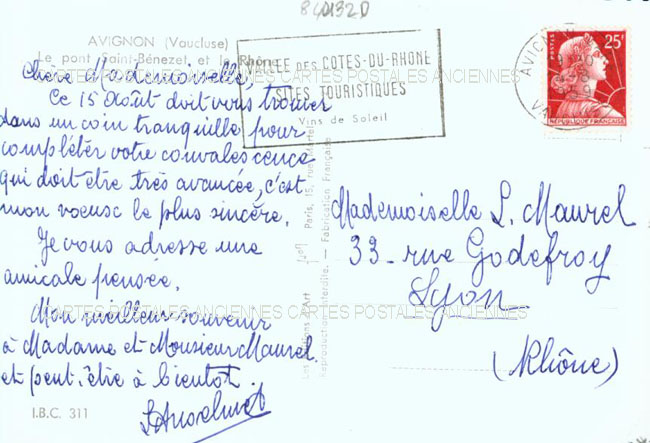 84013 2D
AVIGNON (Vaucluse)
Le pont Saint-Bénezet, et le Rhône
Chère Mademoiselle,
Ce 15 Août doit vous trouver
dans un coin tranquille pour
complétér votre convalescence
qui doit être très avancée, c'est
mon voeux le plus sincère.
Je vous adresse une
amicale pensée.
Mon meilleur souvenir
à Madame et Monsieur Maurel
et peut-être à bientôt.
I.B.C. 311
VALLEE DES COTES-DU-RHONE
SITES TOURISTIQUES
Vins de Soleil
AVIGNON
POSTES
25F
REPUBLIQUE FRANÇAISE
Mademoiselle L. Maurel
33 - rue Godefroy
Lyon
(Rhône)
Paris, 15, rue
Reproduction interdite. — Fabrication Française
CARTES POSTALES ANCIENNES CARTES POSTALES ANCIENNES
CARTES POSTALES ANCIENNES CARTES POSTALES ANCIENNES